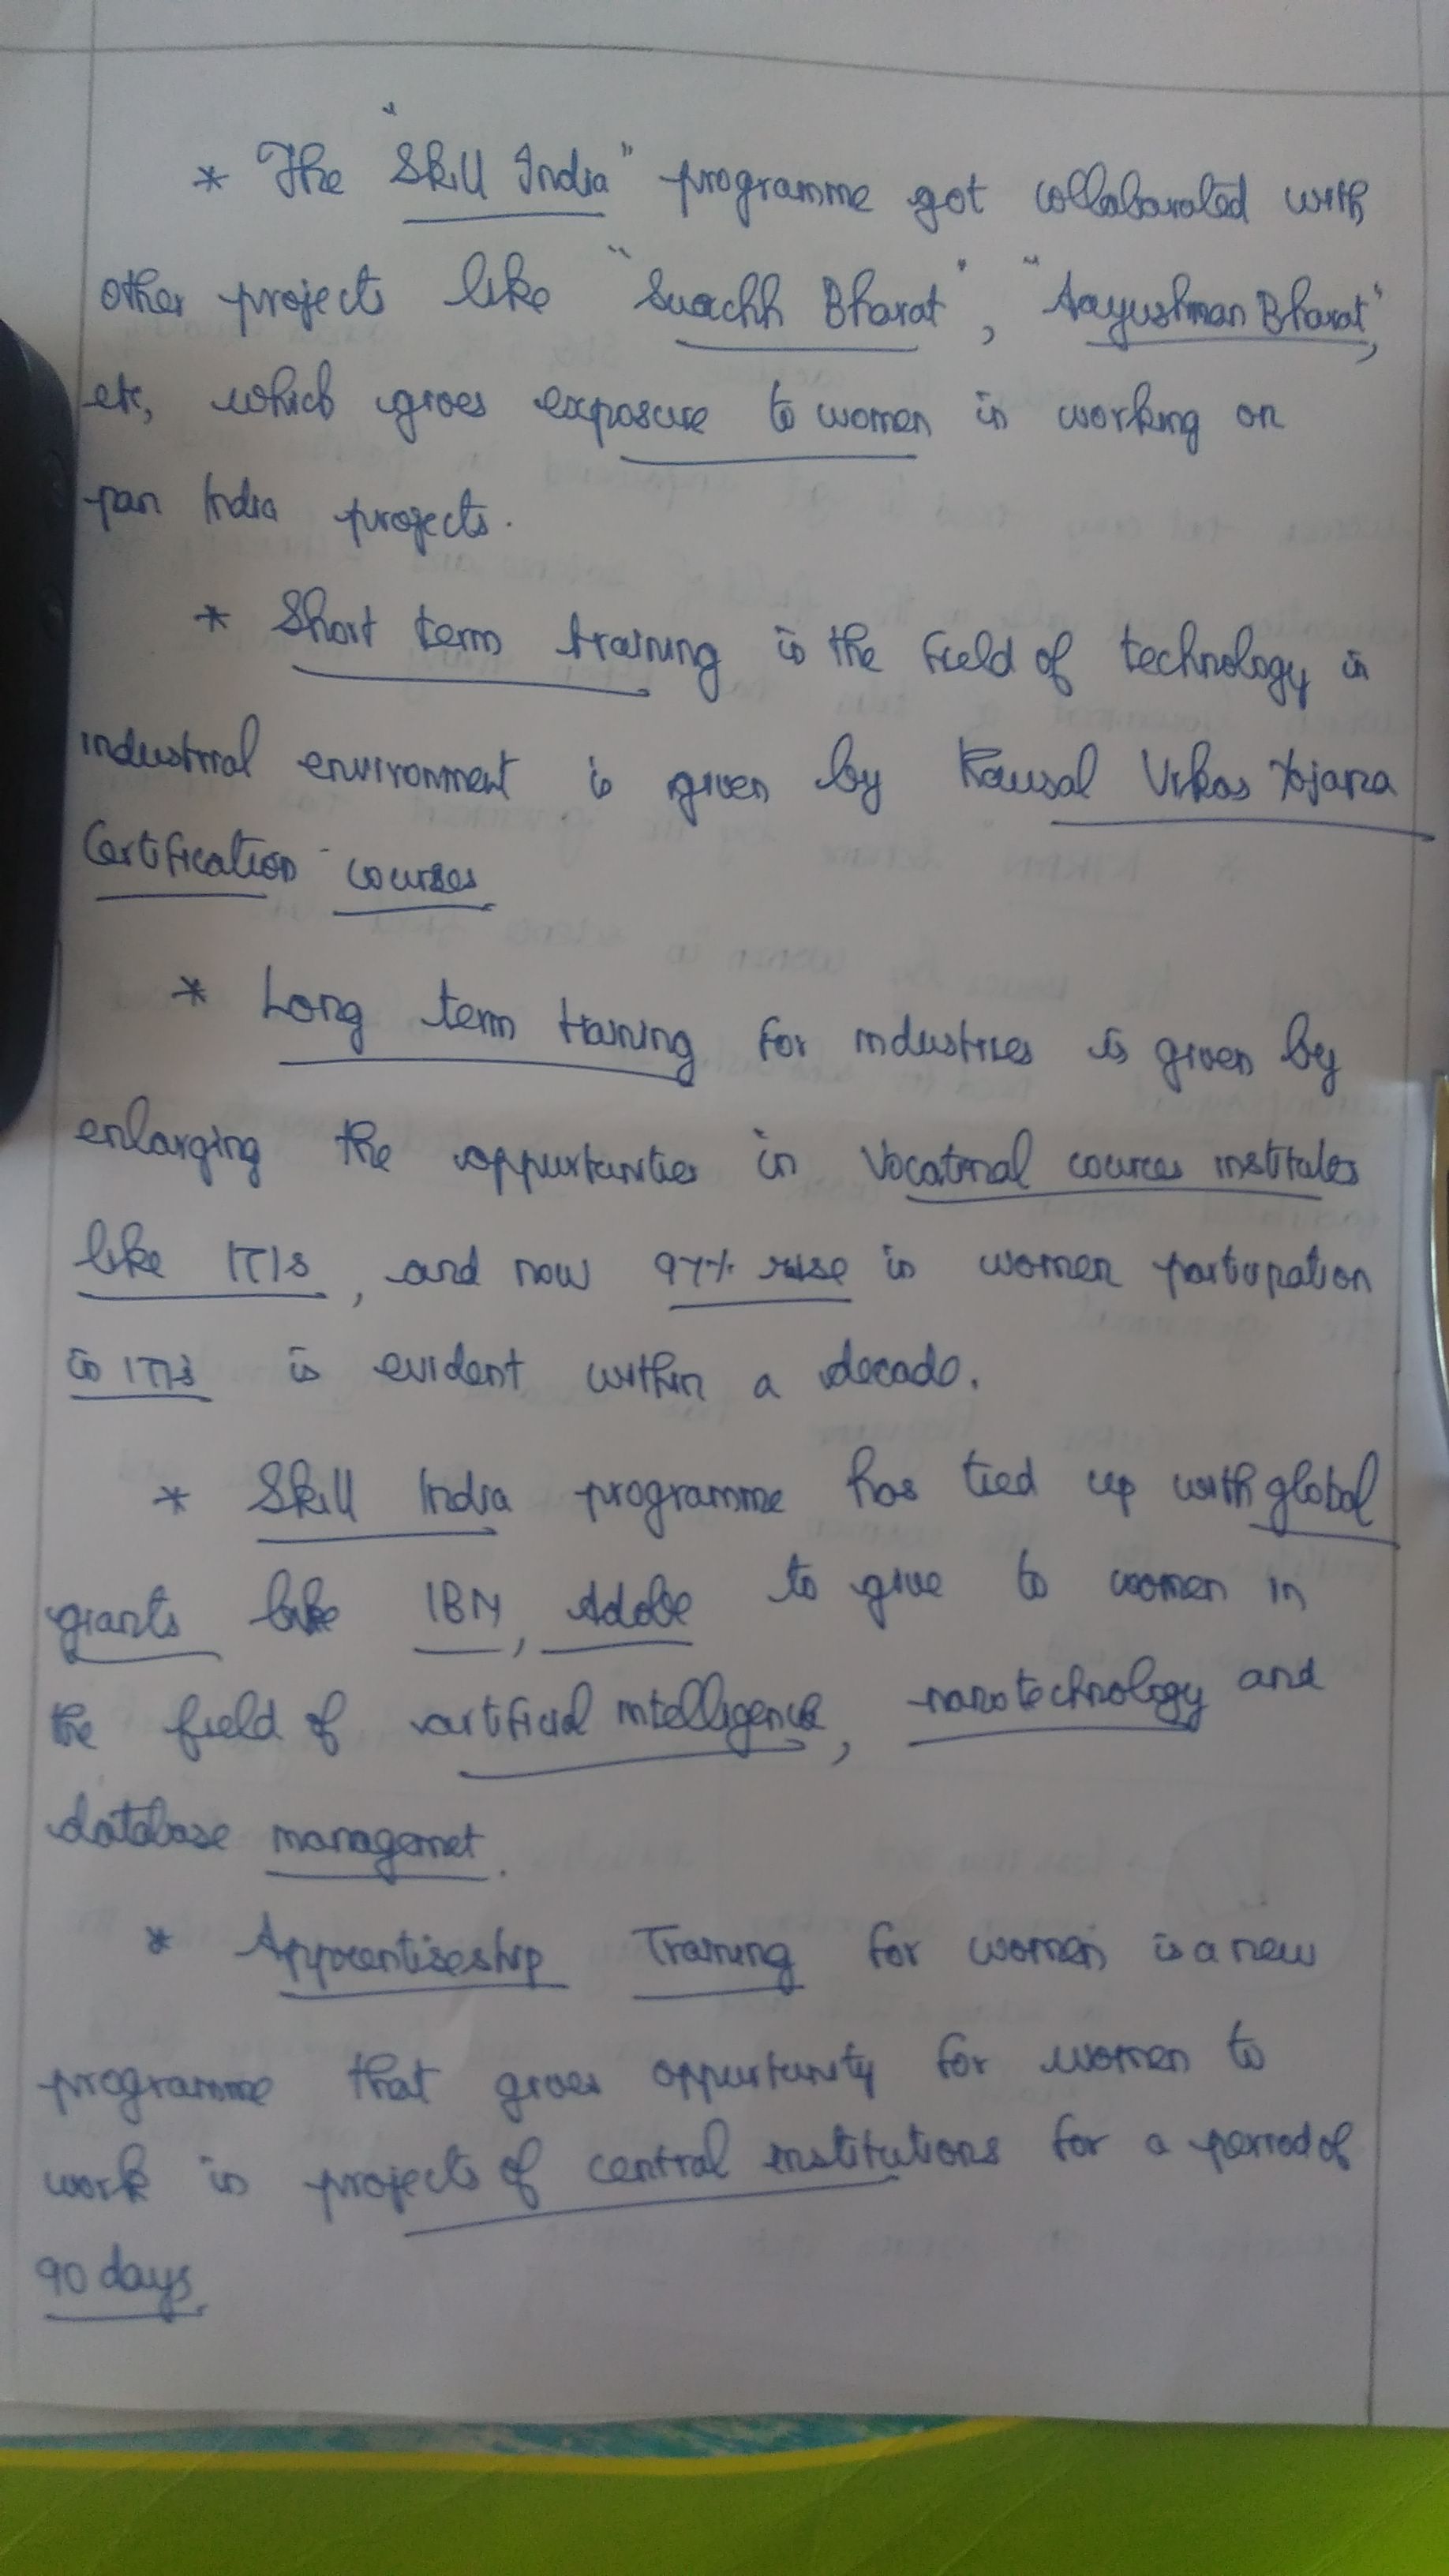 * The "Skill India" programme got collabarated with
other projects like "Swachh Bharat", "Aayushman Bharat",
etc, which gives exposure to women in working on
pan India projects.
* Short term training in the field of technology in
industrial environment is given by Kausal Vikas Yojana
Certification courses
* Long term training for industries is given by
enlarging the oppurtunities in Vocational cources institutes
like ITIs, and now 97% rise in women participation
in ITIs is evident within a decade.
* Skill India programme has tied up with global
giants like IBM, Adobe to give to women in
the field of artificial intelligence, nanotechnology and
database managemet.
* Apprentiseship Training for women is a new
programme that gives oppurtunity for women to
work in projects of central institutions for a period of
90 days.